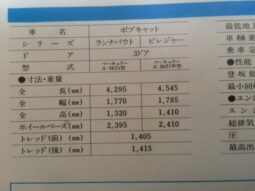 車名 ボブキャット
シリーズ ランナバウト ビレジャー
ドア 3ドア
型式 マーキュリー マーキュリー
●寸法・重量
全長(mm) 4,295 4,545
全幅(mm) 1,770 1,785
全高(mm) 1,320 1,410
ホイールベース(mm) 2,395 2,410
トレッド(前)(mm) 1,405
トレッド(後)(mm) 1,415
最低地
車輌重
乗車定
●性能
登坂能
最小回
●エン
エンジ
総排気
圧
最高出